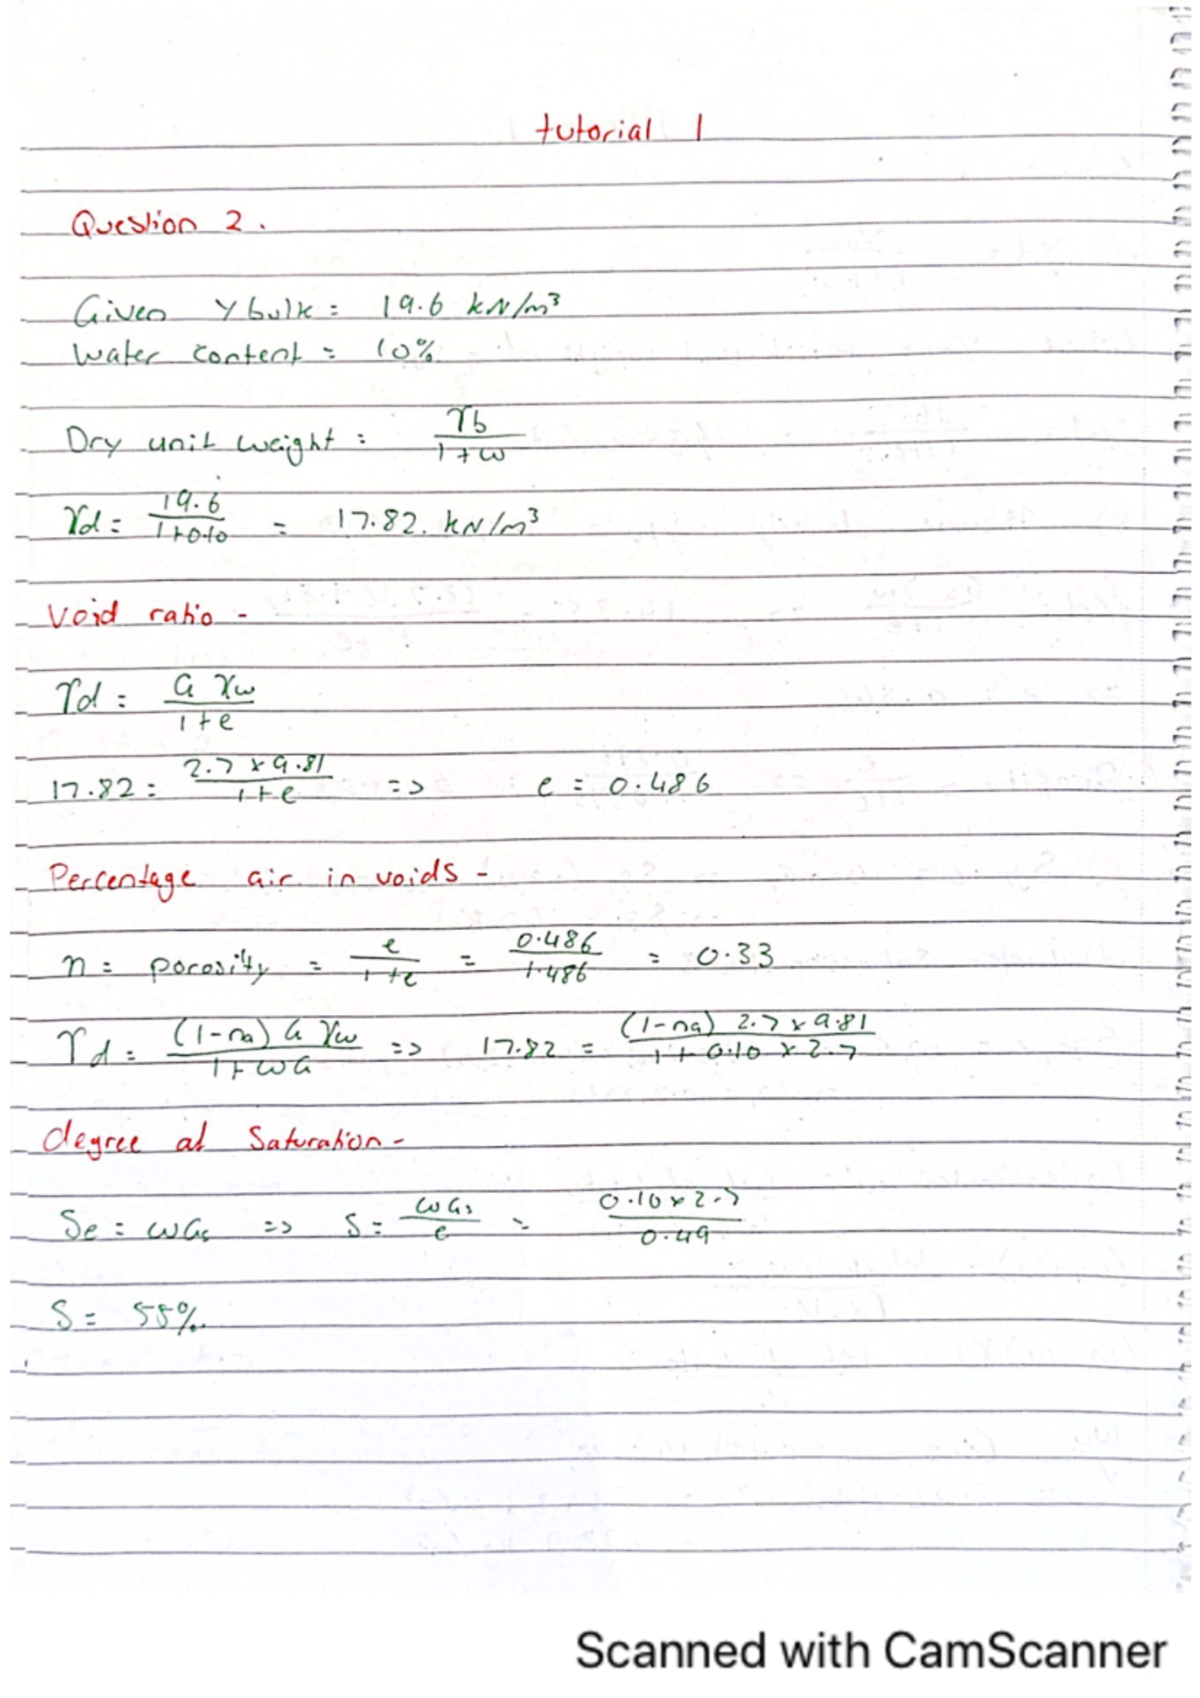 tutorial 1
Question 2.
Given γbulk = 19.6 kN/m³
Water content = 10%
Dry unit weight = γb / 1+ω
γd = 19.6 / 1+0.10 = 17.82. kN/m³
Void ratio -
γd = G γw / 1+e
17.82 = 2.7 × 9.81 / 1+e => e = 0.486
Percentage air in voids -
n = porosity = e / 1+e = 0.486 / 1.486 = 0.33
γd = (1-na) G γw / 1+ωG => 17.82 = (1-na) 2.7 × 9.81 / 1+0.10 × 2.7
degree at Saturation -
Se = ωGs => S = ωGs / e = 0.10 × 2.7 / 0.49
S = 55%.
Scanned with CamScanner